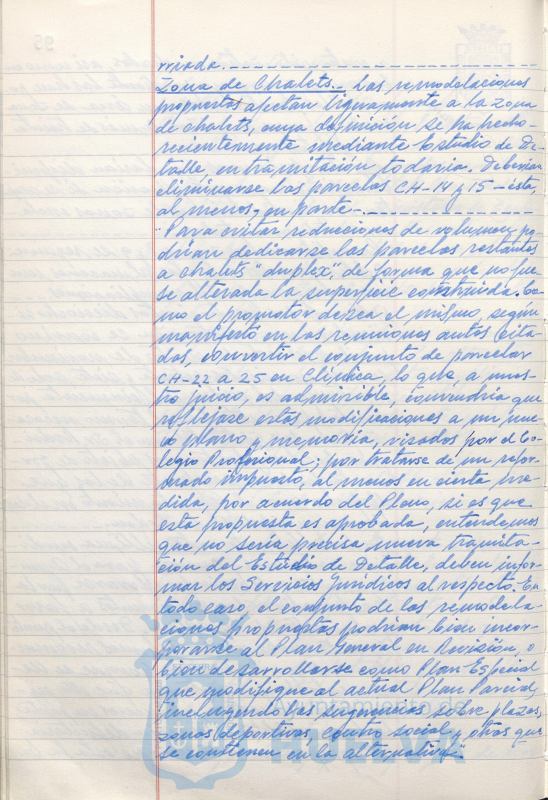 rriada.
Zona de Chalets.- Las remodelaciones
propuestas afectan ligeramente a la zona
de chalets, cuya definición se ha hecho
recientemente mediante Estudio de De-
talle, en tramitación todavía. Deberían
eliminarse las parcelas CH-14 y 15 - ésta,
al menos, en parte-.
"Para evitar reducciones de volumen po-
drían dedicarse las parcelas restantes
a chalets "duplex", de forma que no fue-
se alterada la superficie construida. Co-
mo el promotor desea el mismo, según
manifestó en las reuniones antes cita-
das, convertir el conjunto de parcelas
CH-22 a 25 en Clínica, lo que, a nues-
tro juicio, es admisible, convendría que
reflejase estas modificaciones a un nue-
vo plano y memoria, visados por el Co-
legio Profesional; por tratarse de un refor-
mado impuesto, al menos en cierta me-
dida, por acuerdo del Pleno, si es que
esta propuesta es aprobada, entendemos
que no sería precisa nueva tramita-
ción del Estudio de Detalle, deben infor-
mar los Servicios Jurídicos al respecto. En
todo caso, el conjunto de las remodela-
ciones propuestas podrían bien incor-
porarse al Plan General en Revisión, o
bien desarrollarse como Plan Especial
que modifique al actual Plan Parcial,
incluyendo las sugerencias sobre plazas,
zonas deportivas, centro social y otras que
se contienen en la alternativa".
Ayuntamiento de
HUELVA